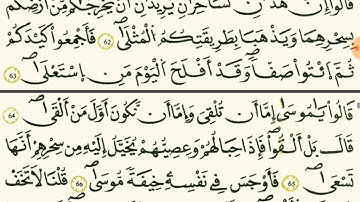 قَالُوٓاْ إِنَّ هَٰذَٰنِ لَسَٰحِرَٰنِ يُرِيدَٰنِ أَنْ يُّخْرِجَٰكُم مِّنَ اَرْضِكُم
بِسِحْرِهِمَا وَيَذْهَبَا بِطَرِيقَتِكُمُ الْمُثْلَىٰ 62 فَأَجْمِعُواْ كَيْدَكُمْ
ثُمَّ اَئْتُواْ صَفّاً وَقَدْ أَفْلَحَ الْيَوْمَ مَنِ اِسْتَعْلَىٰ 63
قَالُواْ يَٰمُوسَىٰٓ إِمَّآ أَن تُلْقِىَ وَإِمَّآ أَن نَّكُونَ أَوَّلَ مَنَ اَلْقَىٰ 64
قَالَ بَلَ اَلْقُواْ فَإِذَا حِبَالُهُمْ وَعِصِيُّهُمْ يُخَيَّلُ إِلَيْهِ مِن سِحْرِهِمُۥٓ أَنَّهَا
تَسْعَىٰ 65 فَأَوْجَسَ فِى نَفْسِهِۦ خِيفَةً مُّوسَىٰ 66 قُلْنَا لَا تَخَفِ